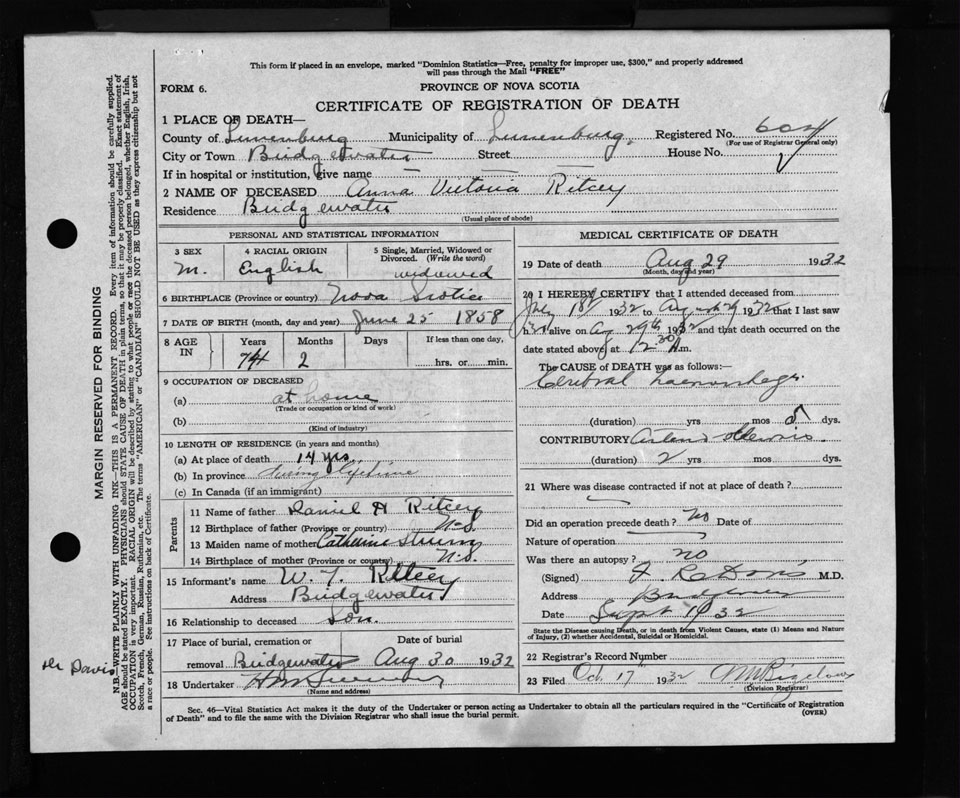 This form if placed in an envelope, marked "Dominion Statistics—Free, penalty for improper use, $300," and properly addressed
will pass through the Mail "FREE"
FORM 6.
PROVINCE OF NOVA SCOTIA
CERTIFICATE OF REGISTRATION OF DEATH
1 PLACE OF DEATH—
County of Lunenburg Municipality of Lunenburg Registered No. 604
(For use of Registrar General only)
City or Town Bridgewater Street — House No.
If in hospital or institution, give name — —
2 NAME OF DECEASED Anna Victoria Ritcey
Residence Bridgewater
(Usual place of abode)
PERSONAL AND STATISTICAL INFORMATION
3 SEX 4 RACIAL ORIGIN 5 Single, Married, Widowed or
Divorced. (Write the word)
M. English widowed
6 BIRTHPLACE (Province or country) Nova Scotia
7 DATE OF BIRTH (month, day and year) June 25 1858
8 AGE IN Years Months Days If less than one day,
74 2 hrs. or min.
9 OCCUPATION OF DECEASED
(a) at home
(Trade or occupation or kind of work)
(b)
(Kind of industry)
10 LENGTH OF RESIDENCE (in years and months)
(a) At place of death 14 yrs.
(b) In province during lifetime
(c) In Canada (if an immigrant)
Parents
11 Name of father Daniel H Ritcey
12 Birthplace of father (Province or country) N.S.
13 Maiden name of mother Catherine
14 Birthplace of mother (Province or country) N.S.
15 Informant's name W. T. Ritcey
Address Bridgewater
16 Relationship to deceased Son.
17 Place of burial, cremation or Date of burial
removal Bridgewater Aug 30 1932
18 Undertaker
(Name and address)
MEDICAL CERTIFICATE OF DEATH
19 Date of death Aug 29 1932
(Month, day and year)
20 I HEREBY CERTIFY that I attended deceased from
July 18 1932 to Aug 29 1932 that I last saw
h alive on Aug 29th 1932 and that death occurred on the
date stated above at 12.30 A.m.
The CAUSE of DEATH was as follows:—
Cerebral haemorrhage
(duration) yrs mos 5 dys.
CONTRIBUTORY
(duration) 2 yrs mos dys.
21 Where was disease contracted if not at place of death?
Did an operation precede death? No Date of
Nature of operation
Was there an autopsy? no
(Signed) M.D.
Address Bridgewater
Date Sept 1932
State the Disease causing Death, or in death from Violent Causes, state (1) Means and Nature
of Injury, (2) whether Accidental, Suicidal or Homicidal.
22 Registrar's Record Number
23 Filed Oct 17 1932
(Division Registrar)
Sec. 46—Vital Statistics Act makes it the duty of the Undertaker or person acting as Undertaker to obtain all the particulars required in the "Certificate of Registration
of Death" and to file the same with the Division Registrar who shall issue the burial permit.
(OVER)
MARGIN RESERVED FOR BINDING
N.B.—WRITE PLAINLY WITH UNFADING INK—THIS IS A PERMANENT RECORD. Every item of information should be carefully supplied.
AGE should be stated EXACTLY. PHYSICIANS should STATE CAUSE OF DEATH in plain terms, so that it may be properly classified. Exact statement of
OCCUPATION is very important. RACIAL ORIGIN will be described by stating to what people or race the deceased person belonged, whether English, Irish,
Scotch, French, German, Russian, Ruthenian, etc. The terms "AMERICAN" or "CANADIAN" SHOULD NOT BE USED as they express citizenship but not
a race or people. See instructions on back of Certificate.
Dr Davis